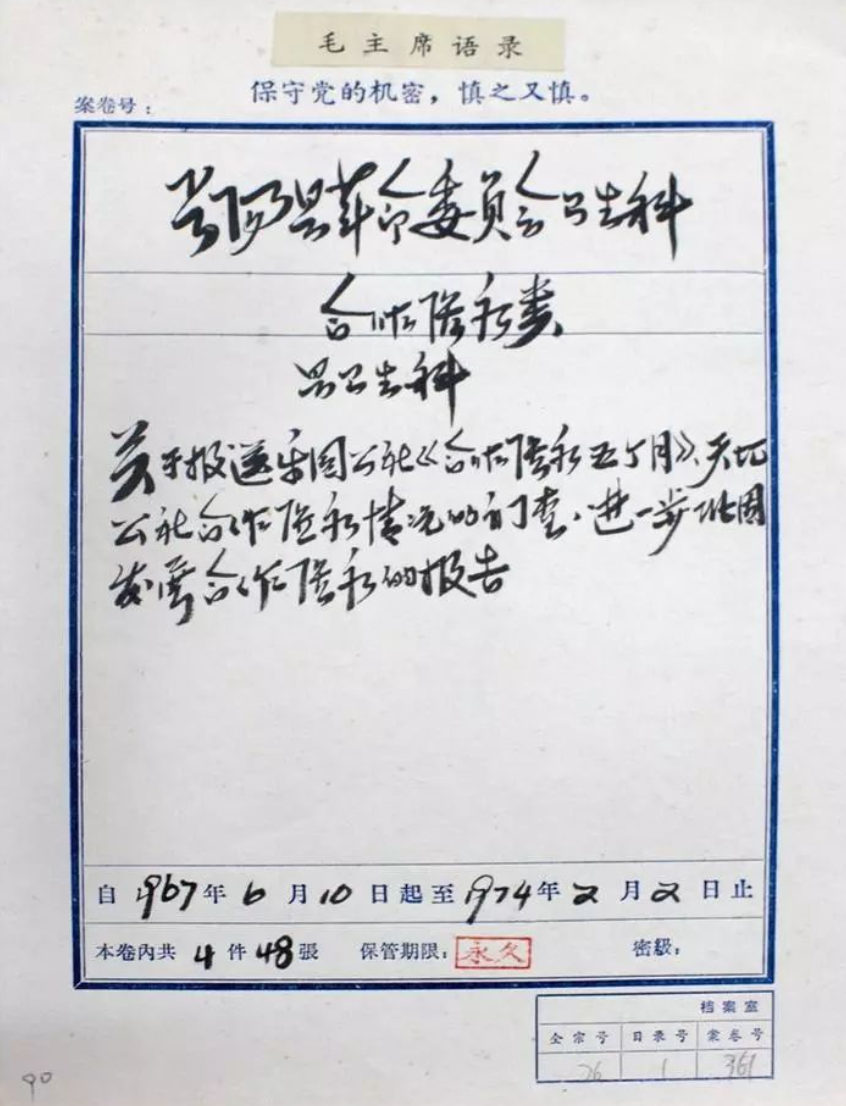 毛主席语录
保守党的机密，慎之又慎。
案卷号：
长阳县革命委员会卫生科
合作医疗类
县卫生科
关于报送乐园公社《合作医疗五个月》、天池
公社合作医疗情况的调查、进一步巩固
发展合作医疗的报告
自1967年6月10日起至1974年2月2日止
本卷内共4件48張 保管期限：永久 密級：
档案室
全宗号 目录号 案卷号
1 361
90